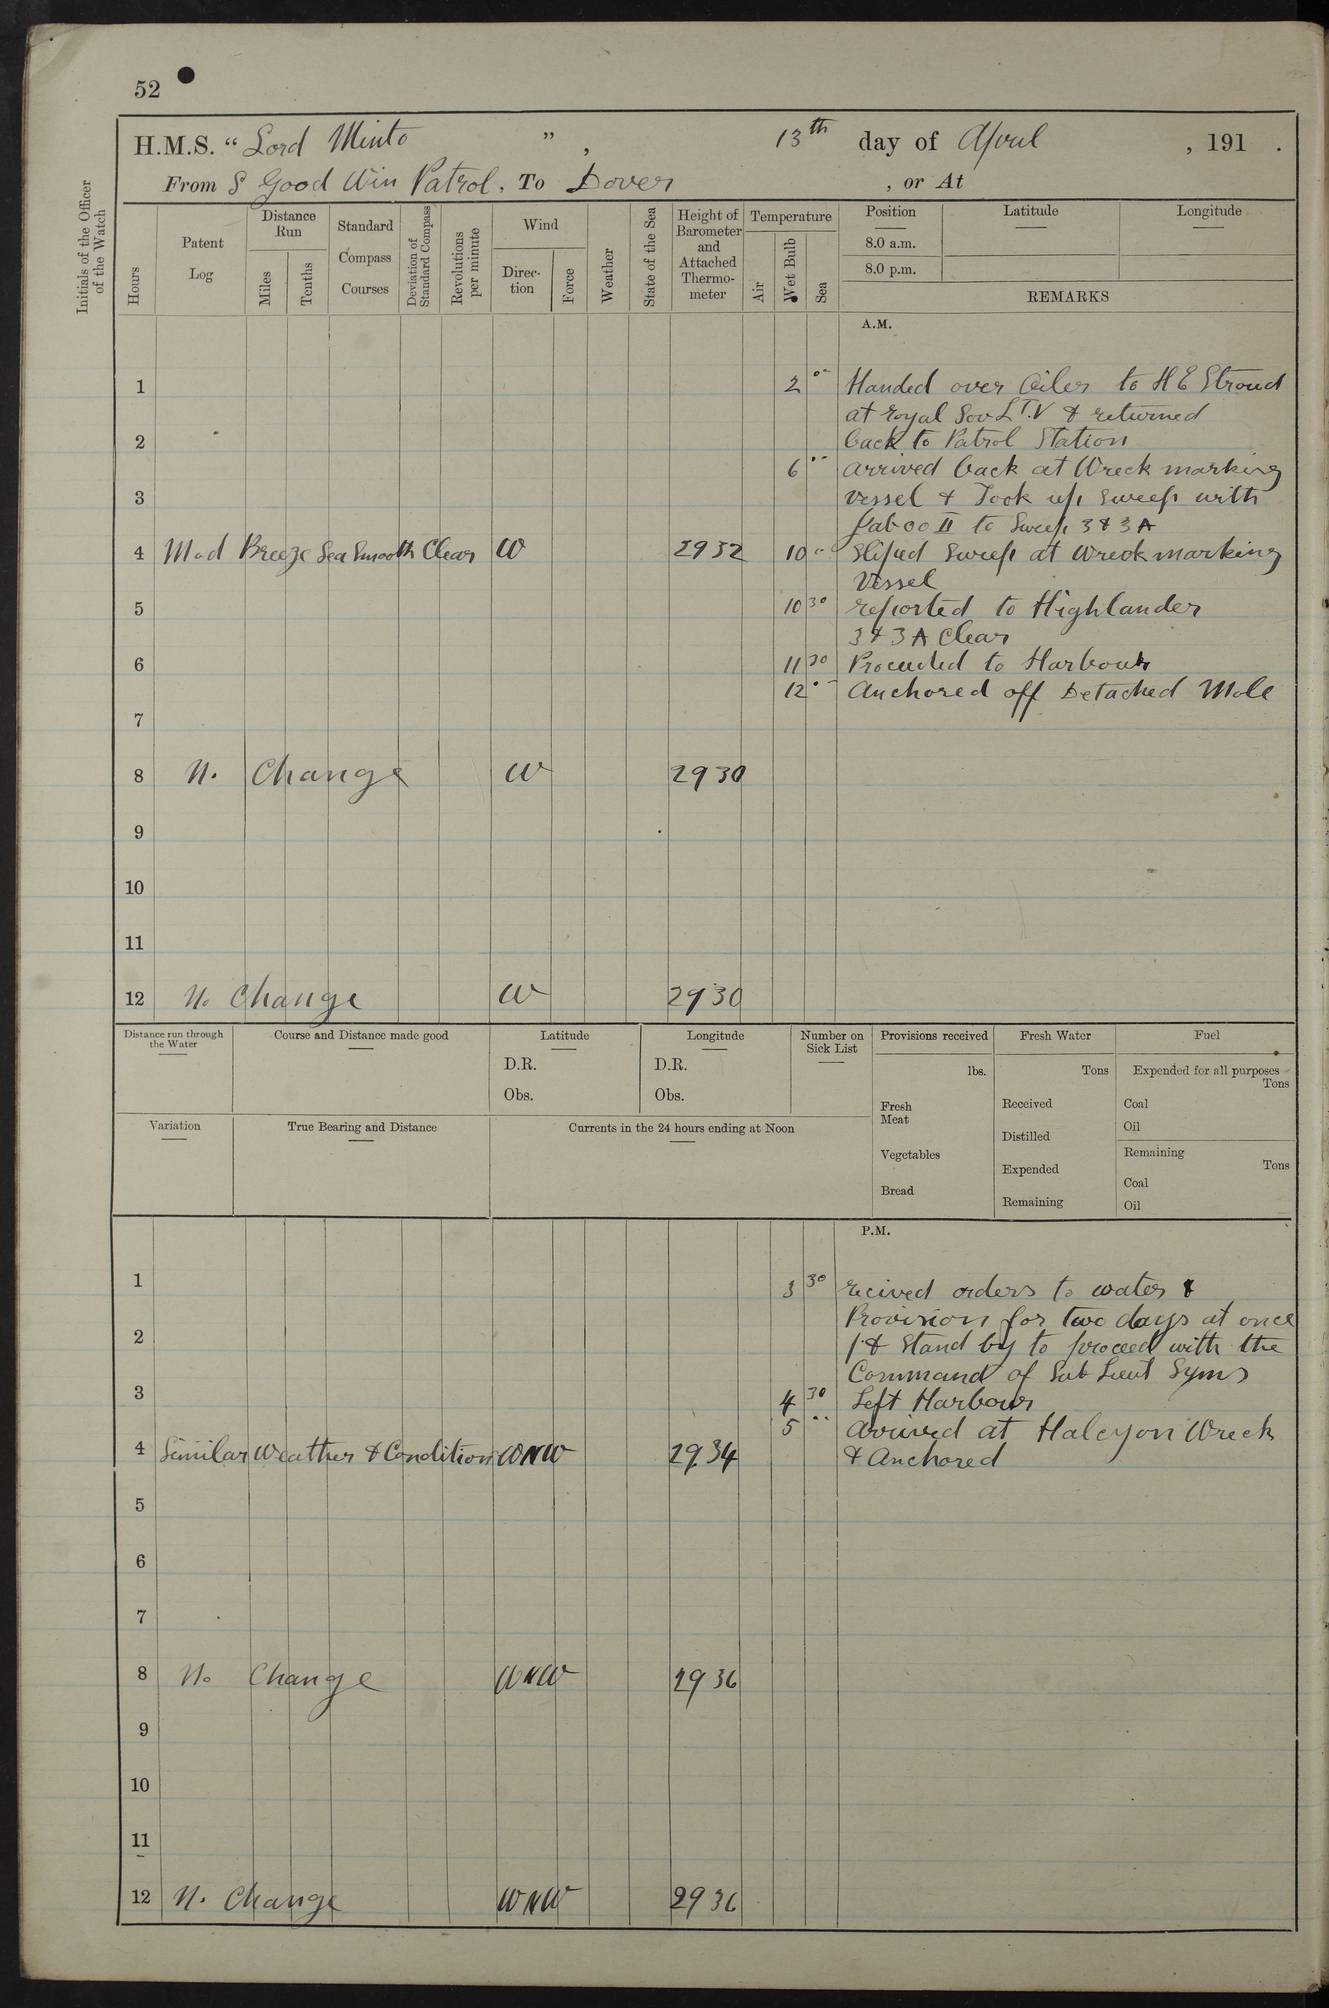 52
H.M.S. “ Lord Minto ”, 13th day of April , 191 .
From S Good Win Patrol. To Dover , or At
Initials of the Officer of the Watch
Hours
Patent Log
Distance Run
Miles
Tenths
Standard Compass Courses
Deviation of Standard Compass
Revolutions per minute
Wind
Direction
Force
Weather
State of the Sea
Height of Barometer and Attached Thermometer
Temperature
Air
Wet Bulb
Sea
Position
Latitude
Longitude
8.0 a.m.
8.0 p.m.
REMARKS
A.M.
1 2 00 Handed over Oiler to H E Stroud
at Royal Sov L T.V & returned
2 back to Patrol Station
6 00 arrived back at Wreck marking
3 vessel & Took up sweep with
II to Sweep 3 & 3 A
4 Mod Breeze Sea Smooth Clear W 2932 10 00 Sliped Sweep at Wreck marking
Vessel
5 10 30 reported to Highlander
3 & 3 A Clear
6 11 30 Proceeded to Harbour
12 00 Anchored off Detached Mole
7
8 No Change W 2930
9
10
11
12 No Change W 2930
Distance run through the Water
Course and Distance made good
Latitude
D.R.
Obs.
Longitude
D.R.
Obs.
Number on Sick List
Provisions received
lbs.
Fresh Meat
Vegetables
Bread
Fresh Water
Tons
Received
Distilled
Expended
Remaining
Fuel
Expended for all purposes
Tons
Coal
Oil
Remaining
Tons
Coal
Oil
Variation
True Bearing and Distance
Currents in the 24 hours ending at Noon
P.M.
1 3 30 recived orders to water &
Provision for two days at once
2 & Stand by to proceed with the
Command of Sub Lieut Syms
3 4 30 Left Harbour
5 00 Arrived at Halcyon Wreck
4 Similar Weather & Condition WNW 2934 & Anchored
5
6
7
8 No Change WNW 2936
9
10
11
12 No Change WNW 2936